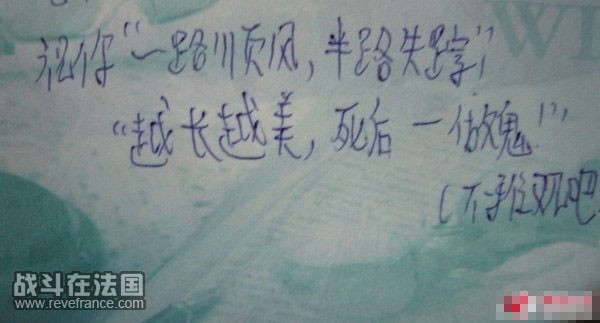 WI
祝你“一路顺风,半路失踪”
“越长越美,死后一做鬼”
(不雅观吧
战斗在法国
www.revefrance.com